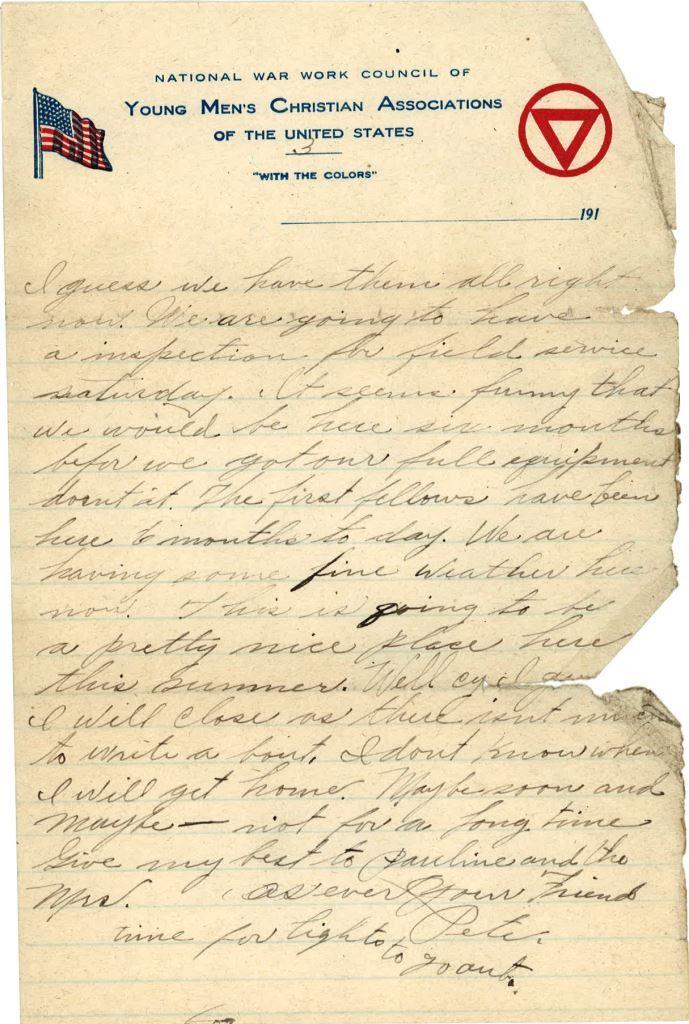 NATIONAL WAR WORK COUNCIL OF
YOUNG MEN'S CHRISTIAN ASSOCIATIONS
OF THE UNITED STATES
3
"WITH THE COLORS"
191
I guess we have them all right
now. We are going to have
a inspection for field service
saturday. It seems funny that
we would be here six months
befor we got our full equipment
dosnt it. The first fellows have been
here 6 months to day. We are
having some fine weather here
now. This is going to be
a pretty nice place here
this summer. Well cy I
I will close as there isnt much
to write a bout. I dont know when
I will get home. Maybe soon and
maybe — not for a long time
Give my best to Pauline and the
Mrs. As ever Your Friend
Pete.
time for lights to go out.